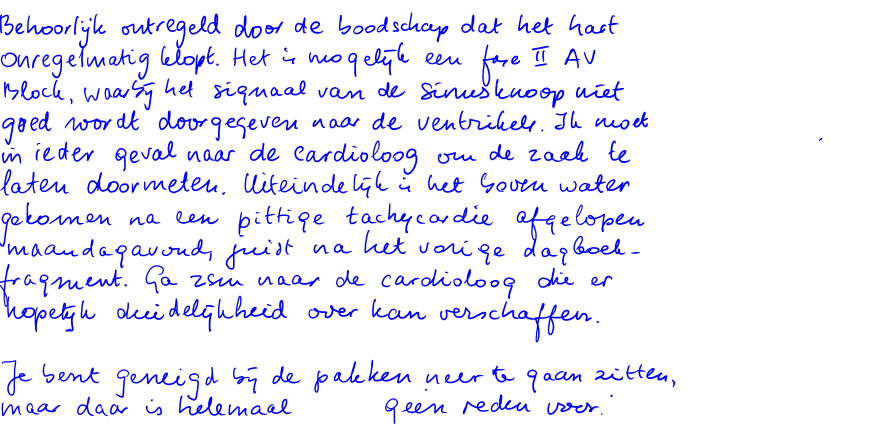 Behoorlijk ontregeld door de boodschap dat het hart
onregelmatig klopt. Het is mogelijk een fase II AV
Block, waarbij het signaal van de sinusknoop niet
goed wordt doorgegeven naar de ventrikels. Ik moet
in ieder geval naar de cardioloog om de zaak te
laten doormeten. Uiteindelijk is het boven water
gekomen na een pittige tachycardie afgelopen
maandagavond, juist na het vorige dagboek-
fragment. Ga zsm naar de cardioloog die er
hopelijk duidelijkheid over kan verschaffen.
Je bent geneigd bij de pakken neer te gaan zitten,
maar daar is helemaal geen reden voor.